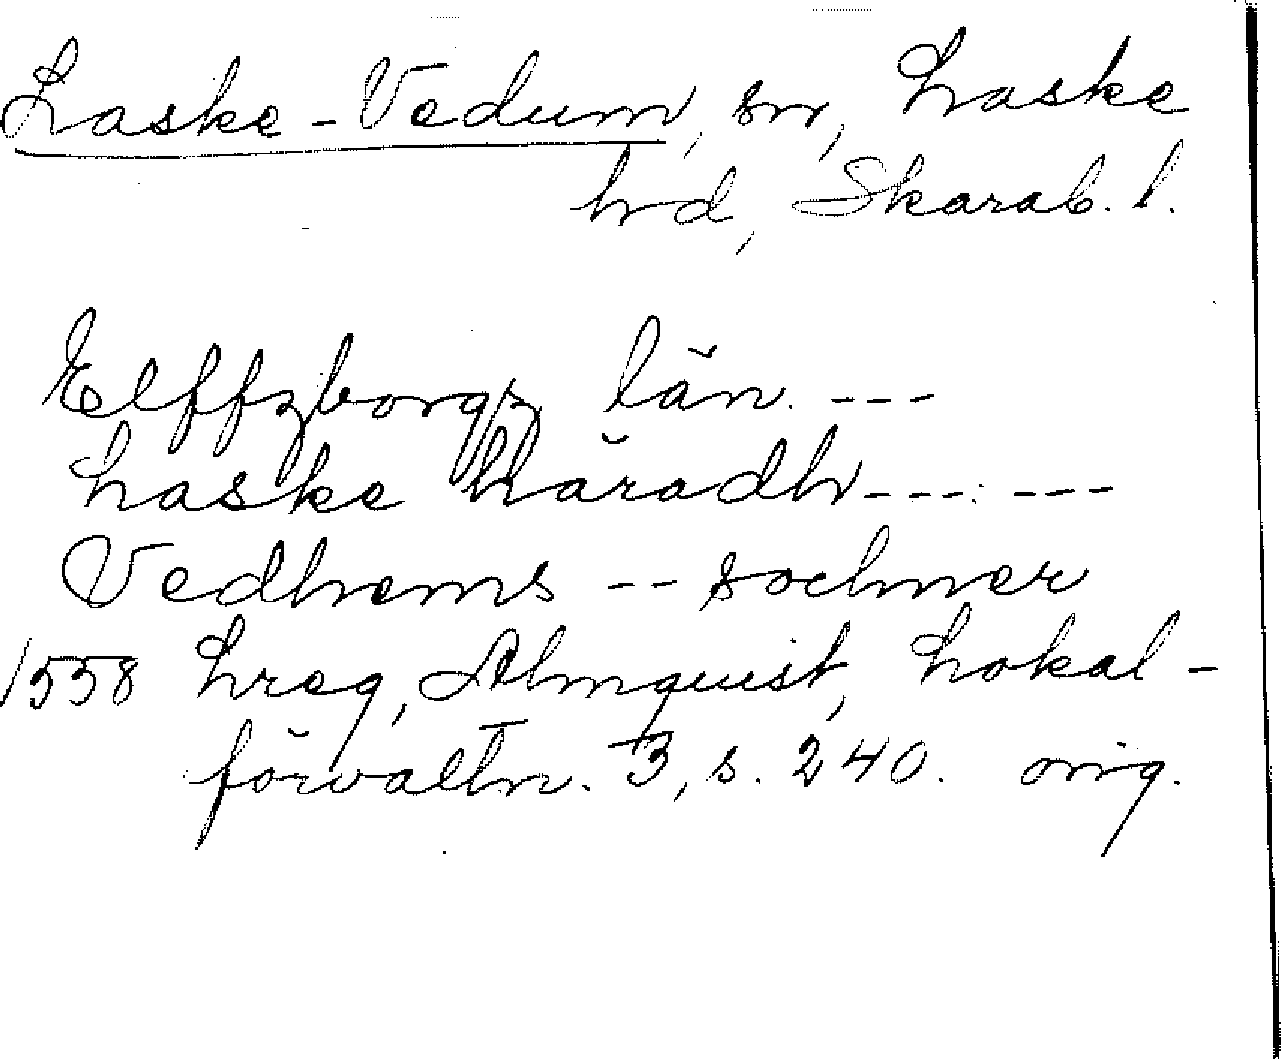 Laske-Vedum, sn, Laske
hd, Skarab. l.
Elffzborgz län. ---
Laske häradh--- ---
Vedhems -- sochner
1558 Lreg, Almquist, Lokal-
förvaltn. 3, s. 240. orig.